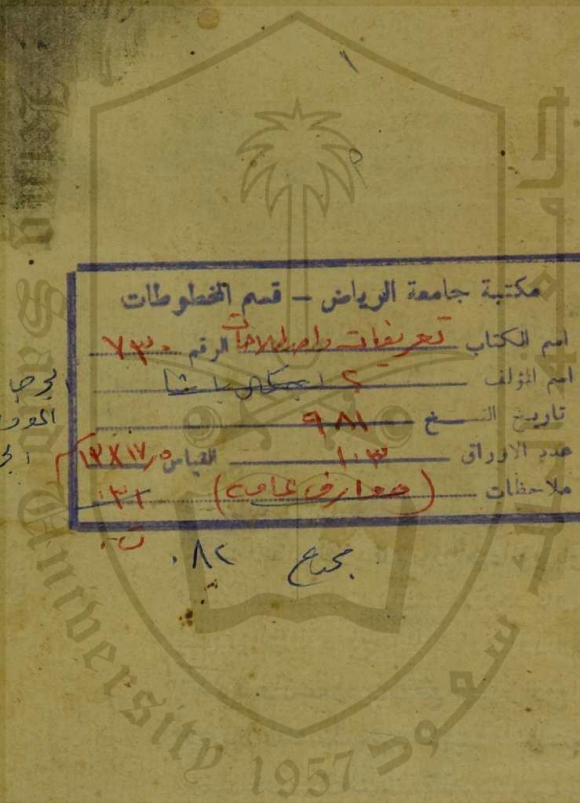 ١
مكتبة جامعة الرياض - قسم المخطوطات
اسم الكتاب تعريفات واصطلاحات الرقم ٧٣٠
اسم المؤلف ؟ ابن كمال باشا
تاريخ النسخ ٩٨١
عدد الاوراق ١٠٣ القياس
ملاحظات (معارف عامة)
جامعة
سعود
King Saud University
1957